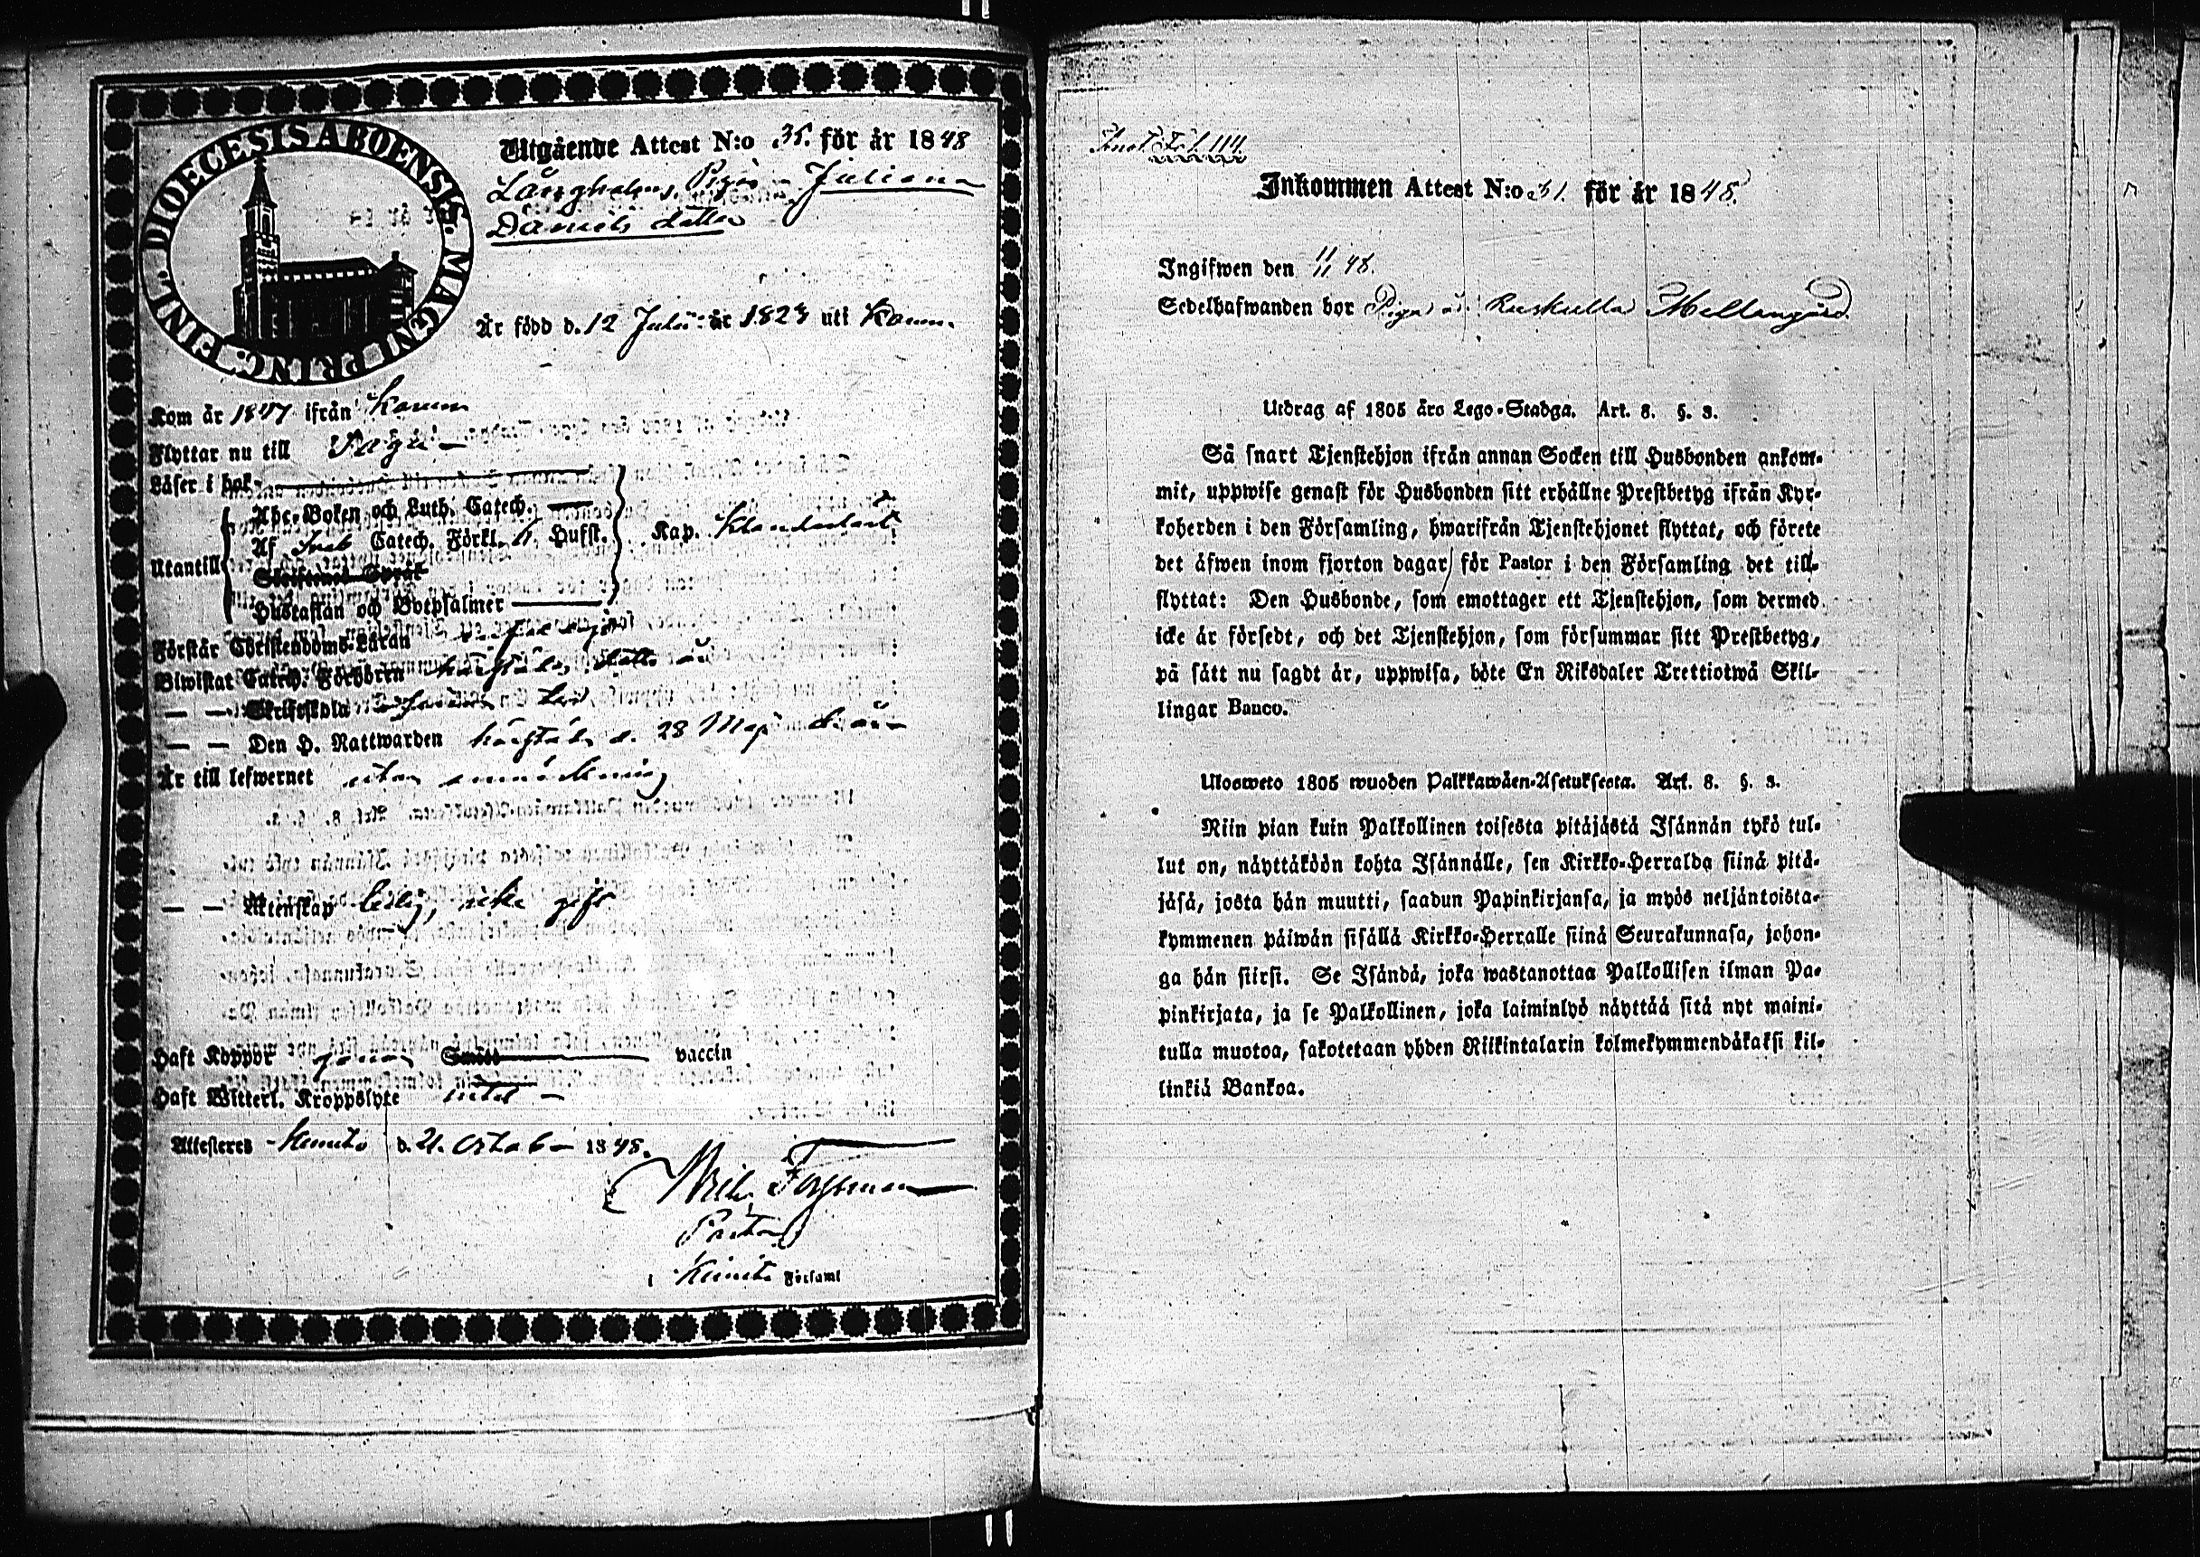 DIOECESIS ABOENSIS. MAGNI PRINC. FINL.
Utgående Attest N:o 35. för år 1848
Långholms Pigan Juliana
Daniels dotter
Är född d. 12 Julii år 1823 uti Karun.
Kom år 1847 ifrån Karun
Flyttar nu till Sagu
Läser i bok
Utantill
Abc-Boken och Luth. Catech.
Af Sveb Catech. Förkl. Hufst. Kap.
Skriftenes Språk
Hustaflan och Botpsalmer
Förstår Christendoms-Läran
Biwistat Catech. Förhören härstädes detta år
— — Skriftskola
— — Den H. Nattwarden härstädes d. 28 Maji d. år
Är till lefwernet utan anmärkning
— — Äktenskap ledig, icke gift
Haft Koppor genom Smitto vaccin
Haft Witterl. Kroppslyte intet
Attesteras Kimito d. 21. October 1848.
Wilh. Forsman
Pastor
i Kimito Församl
Inkommen Attest N:o 31. för år 1848.
Ingifwen den 11/11 48.
Sedelhafwanden bor Piga å Ruskulla Mellangård
Utdrag af 1805 års Lego-Stadga. Art. 8. §. 3.
Så snart Tjenstehjon ifrån annan Socken till Husbonden ankom-
mit, uppwise genast för Husbonden sitt erhållne Prestbetyg ifrån Kyr-
koherden i den Församling, hwarifrån Tjenstehjonet flyttat, och förete
det äfwen inom fjorton dagar för Pastor i den Församling det till-
flyttat: Den Husbonde, som emottager ett Tjenstehjon, som dermed
icke är försedt, och det Tjenstehjon, som försummar sitt Prestbetyg,
på sätt nu sagdt är, uppwisa, böte En Riksdaler Trettiotwå Skil-
lingar Banco.
Ulosweto 1805 wuoden Palkkawäen-Asetuksesta. Art. 8. §. 3.
Niin pian kuin Palkollinen toisesta pitäjästä Isännän tykö tul-
lut on, näyttäköön kohta Isännälle, sen Kirkko-Herralda siinä pitä-
jäsä, josta hän muutti, saadun Papinkirjansa, ja myös neljäntoista-
kymmenen päiwän sisällä Kirkko-Herralle siinä Seurakunnasa, johon-
ga hän siirsi. Se Isändä, joka wastanottaa Palkollisen ilman Pa-
pinkirjata, ja se Palkollinen, joka laiminlyö näyttää sitä nyt maini-
tulla muotoa, sakotetaan yhden Riikintalarin kolmekymmendäkaksi kil-
linkiä Bankoa.